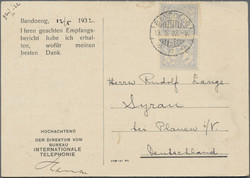 Bandoeng, 12/5 1932.
Ihren geachten Empfangs-
bericht habe ich erhal-
ten, wofür meinen
besten Dank.
HOCHACHTEND
DER DIREKTOR VON
BUREAU
INTERNATIONALE
TELEPHONIE
Herrn Rudolf Lange
Syrau
bei Plauen i/V.
Deutschland